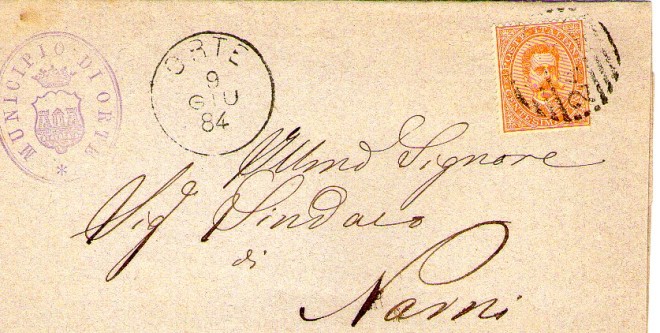 MUNICIPIO DI ORTE *
ORTE
9
GIU
84
POSTE ITALIANE
Illmo Signore
Sig Sindaco
di
Narni